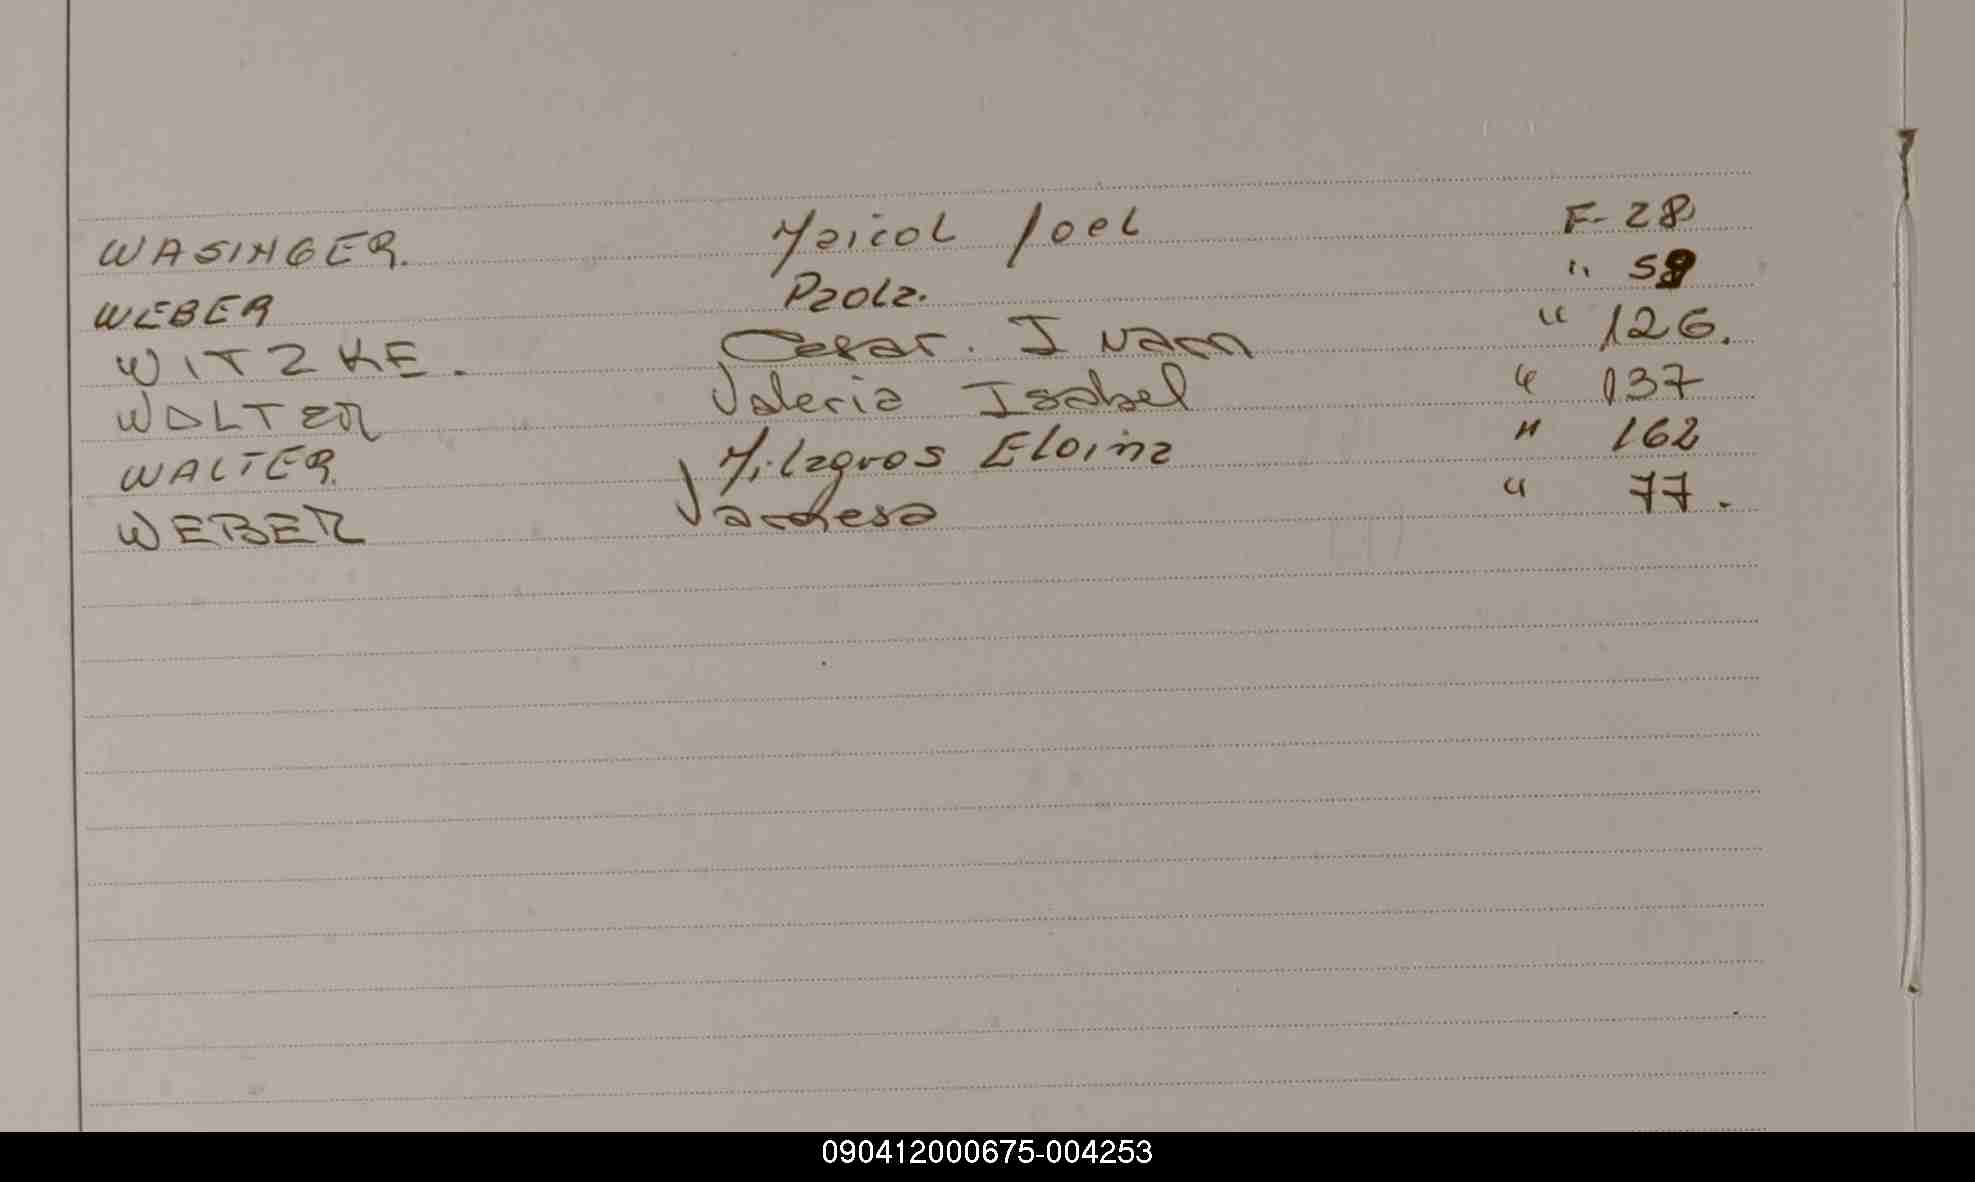 WASINGER. Maicol Joel F- 28
WEBER Paola. " 59
WITZKE. Cesar. Ivan " 126.
WOLTER Valeria Isabel " 137
WALTER. Milagros Eloina " 162
WEBER Vanesa " 77.
090412000675-004253